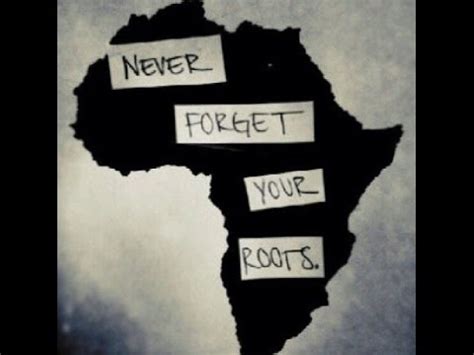 NEVER
FORGET
YOUR
ROOTS.